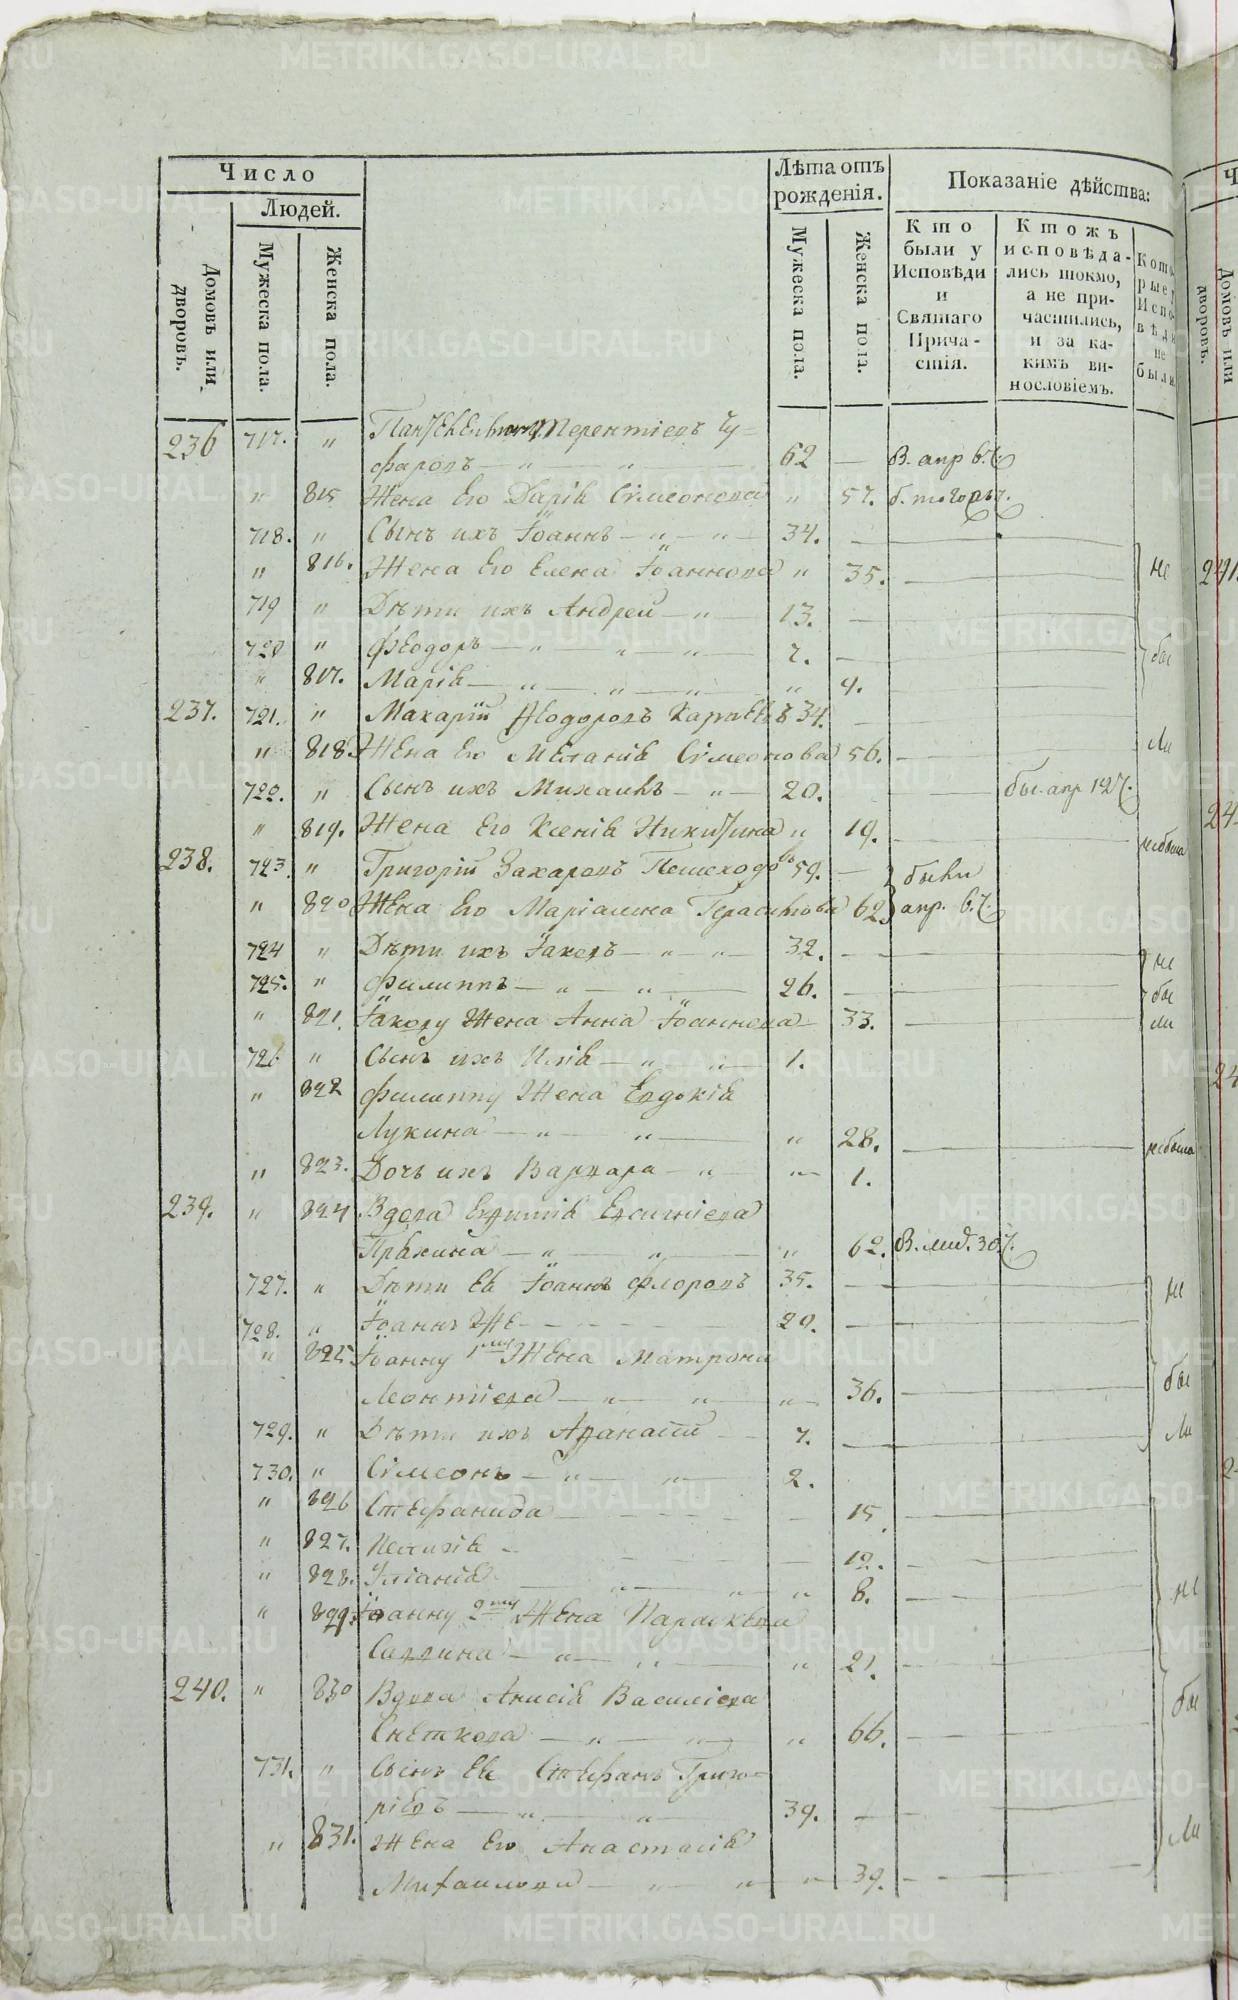 Число
Лѣта отъ рожденія.
Показаніе дѣйства:
Людей.
Домовъ или дворовъ.
Мужеска пола.
Женска пола.
Мужеска пола.
Женска пола.
Кто были у Исповѣди и Святаго Причастія.
Ктожъ исповѣдались токмо, а не причастились, и за какимъ винословіемъ.
Которые у Исповѣди не были.
236 717. " Терентіевъ Чу-
фаровъ — " — " — 62 — В. апр 6.
" 815 Жена Его Дарія Сѵмеонова " 57.
718. " Сынъ ихъ Іоаннъ — " — " — 34. —
" 816. Жена Его Елена Іоаннова " 35. — не
719 " Дѣти ихъ Андрей — " — 13. —
720 " Феодоръ — " — " — " — 7. — бы
" 817. Марія — " — " — " — " 4.
237. 721. " Макарій Ѳеодоровъ 34. —
" 818. Жена Его Меланія Сѵмеонова 56. — ли
722. " Сынъ ихъ Михаилъ — " — 20. бы. апр 12
" 819. Жена Его Ксенія Никитина " 19. — небыла
238. 723. " Григорій Захаровъ Пешеходовъ 59. — были
" 820 Жена Его Маріамна Герасимова 62 апр. 6.
724 " Дѣти ихъ Іаковъ — " — " — 32. — не
725. " Филиппъ — " — " — 26. — бы
" 821. Іакову Жена Анна Іоаннова — 33. — ли
726 " Сынъ ихъ Илія — " — " — 1.
" 822 Филиппу Жена Евдокія
Лукина — " — " — " 28. — небыла
" 823. Дочь ихъ Варвара — " — " 1.
239. " 824 Вдова Евѳимія Евсигніева
— " — " — " 62. В. 30
727. " Дѣти Ея Іоаннъ Флоровъ 35. — не
728. " Іоаннъ Же — 20. —
" 825 Іоанну 1му Жена Матрона
Леонтіева — " — " — " 36. — бы
729. " Дѣти ихъ Аѳанасій — 7. — ли
730. " Сѵмеонъ — " — " 2.
" 826 Стефанида — 15.
" 827. Пелагія — 12. —
" 828. Уліанія — " — " — " 8. — не
" 829. Іоанну 2му Жена Параскева
Саввина — " — " — " 21. —
240. " 830 Вдова Анисія Василіева бы
Снеткова — " — " — " 66. —
731. " Сынъ Ея Стефанъ Григо-
ріевъ — " — " — 39. —
" 831. Жена Его Анастасія ли
Михаилова — " — " — " 39. —
METRIKI.GASO-URAL.RU